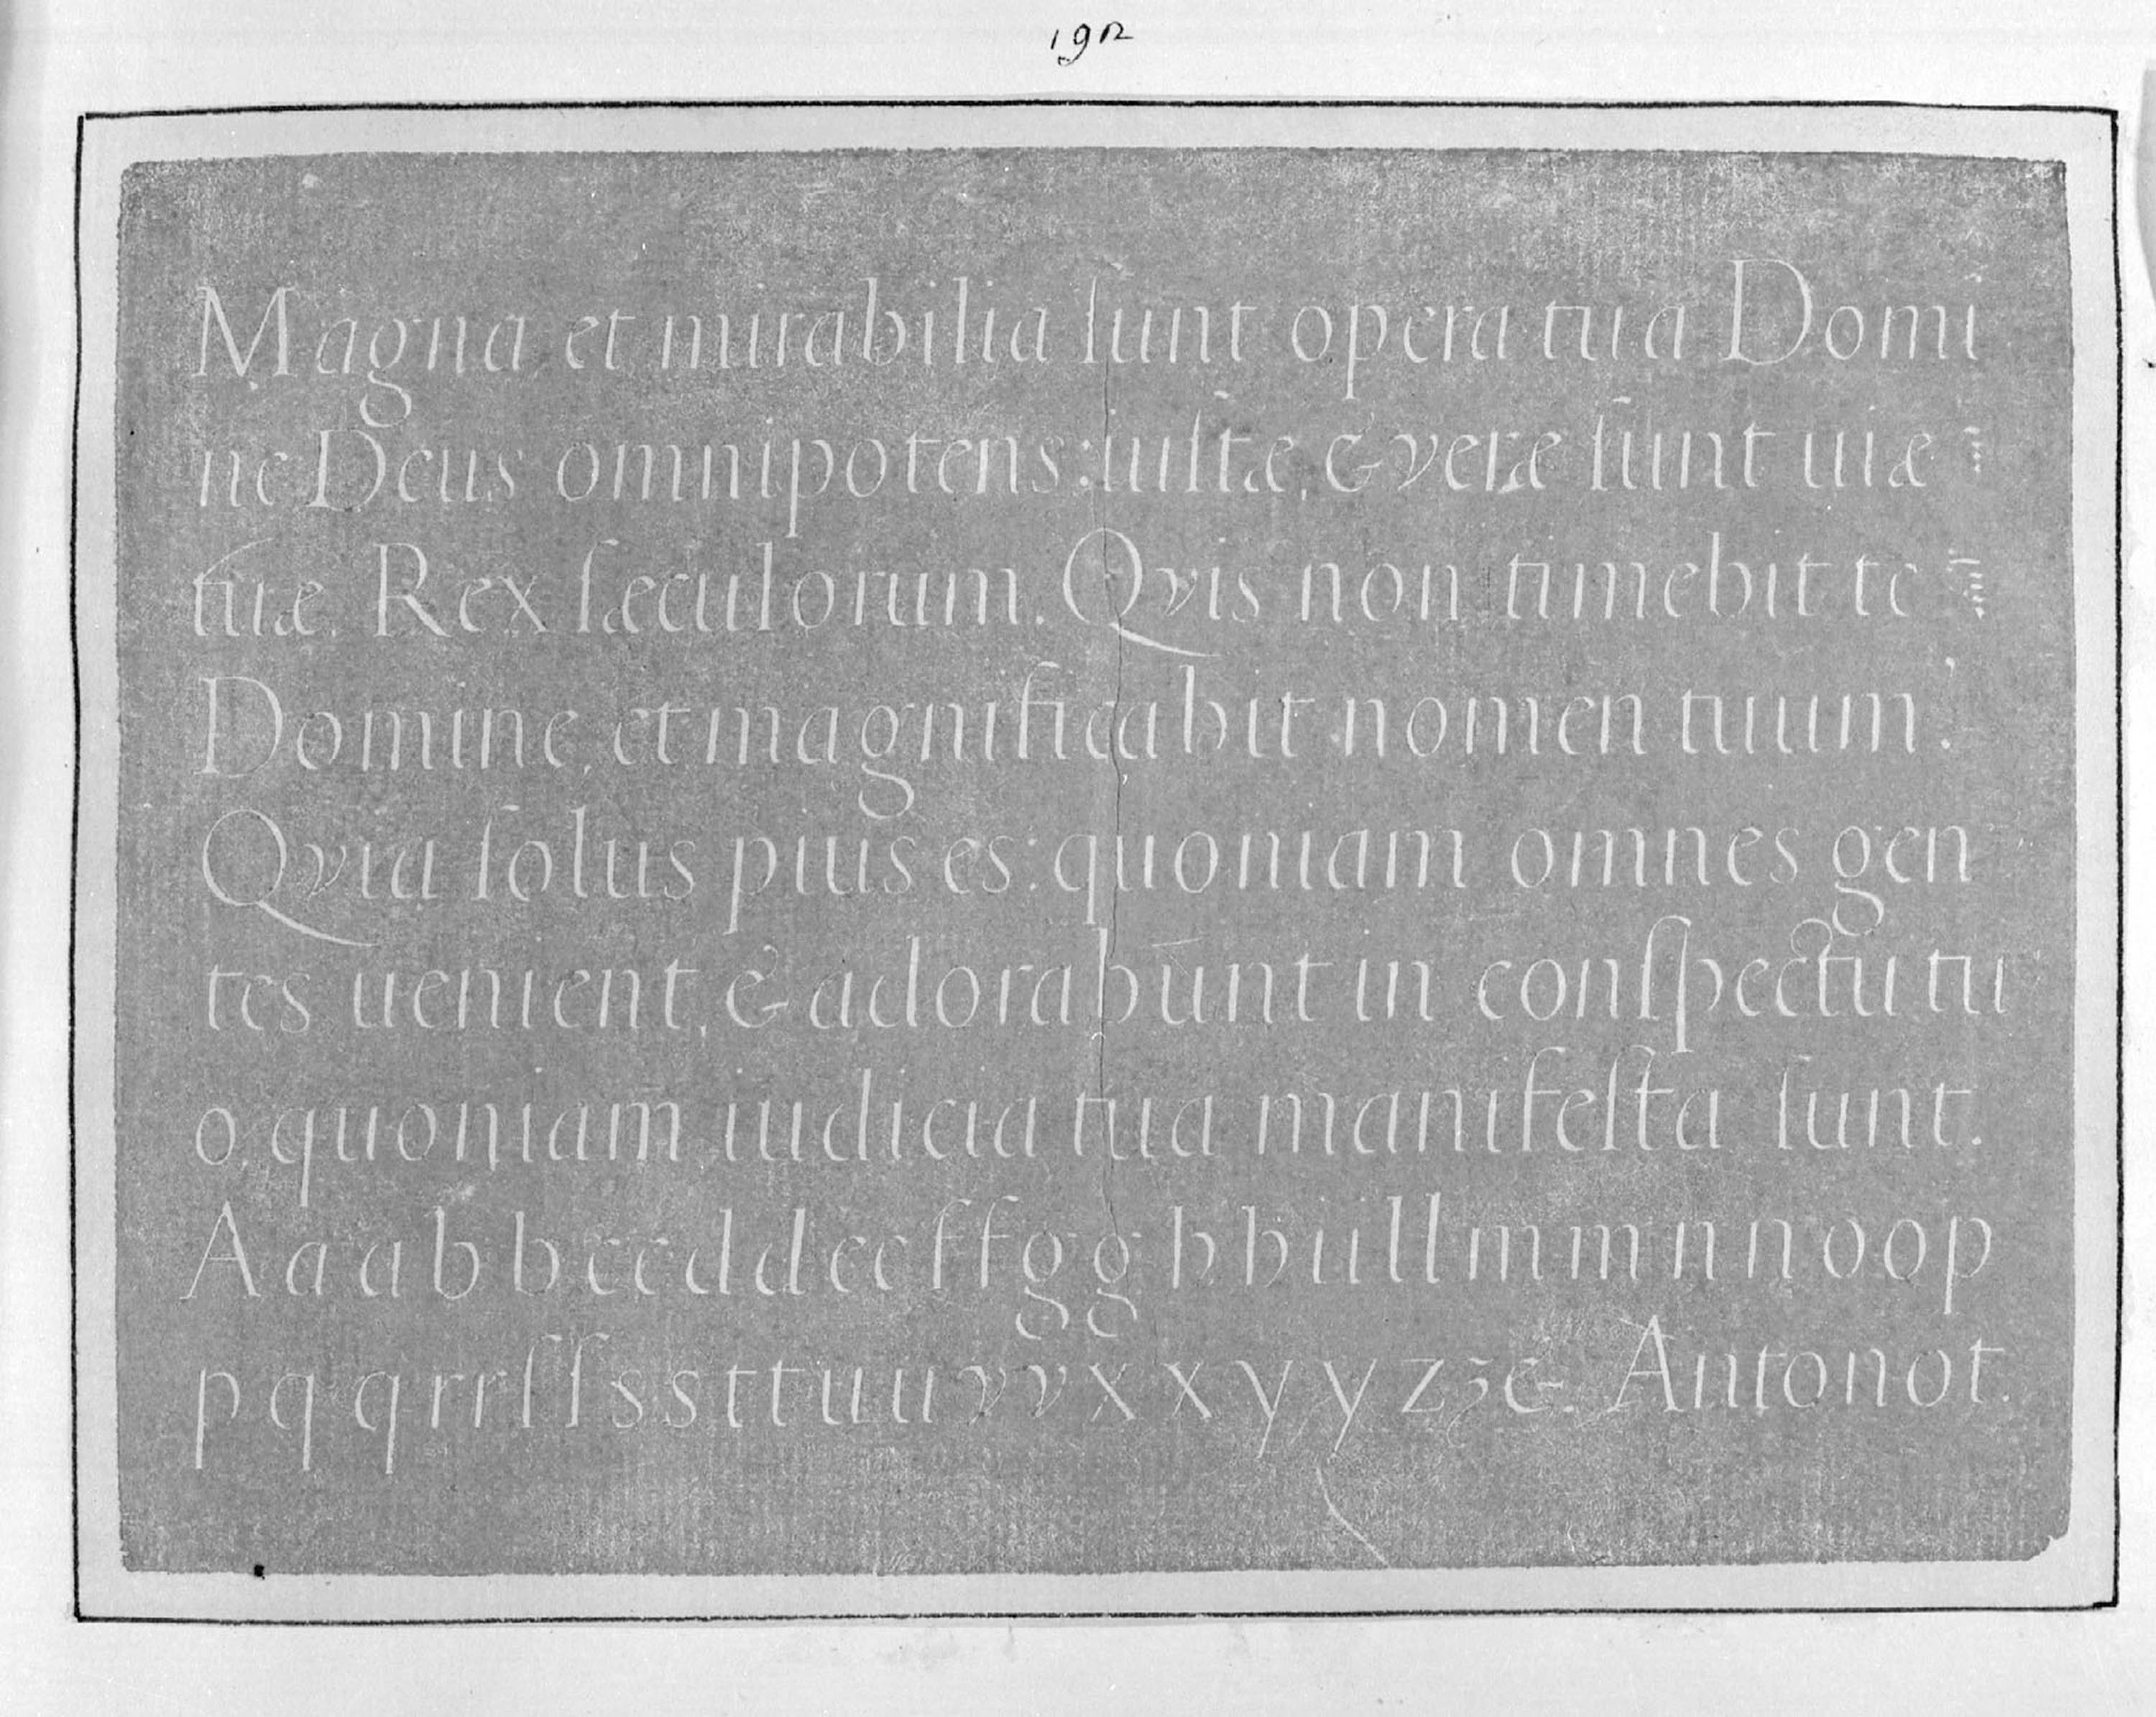 192
Magna et mirabilia ſunt opera tua Domi
ne Deus omnipotens: iuſtæ, & veræ ſunt uiæ
tuæ. Rex ſæculorum. Qvis non timebit te
Domine, et magnificabit nomen tuum?
Qvia ſolus pius es: quoniam omnes gen
tes uenient, & adorabunt in conſpectu tu
o, quoniam iudicia tua manifeſta ſunt.
A a a b b c c d d e e f f g g h h i i l l m m n n o o p
p q q r r ſ ſ s s t t u u v v x x y y z ʒ &. Antonot.